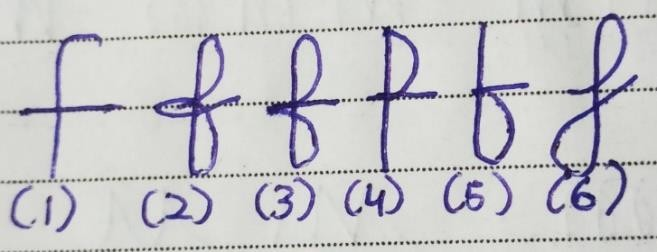 f f f f f f
(1) (2) (3) (4) (5) (6)